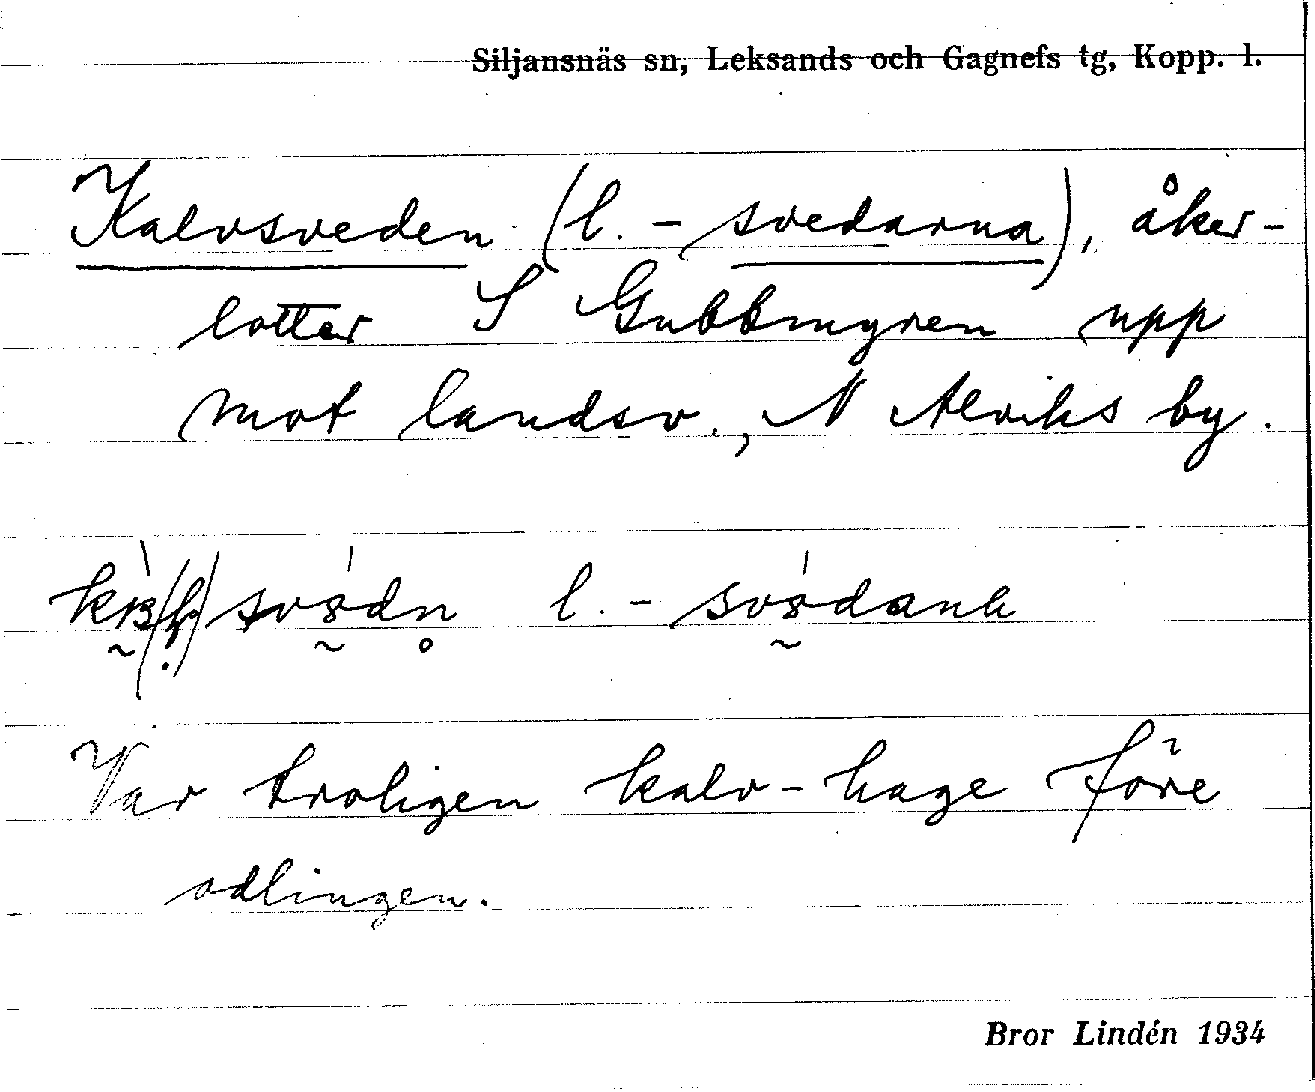 Siljansnäs sn, Leksands och Gagnefs tg, Kopp. l.
Kalvsveden (l. - svedarna), åker-
lotter S Gubbmyren upp
mot landsv., N Alviks by.
l. -
Var troligen kalv-hage före
odlingen.
Bror Lindén 1934